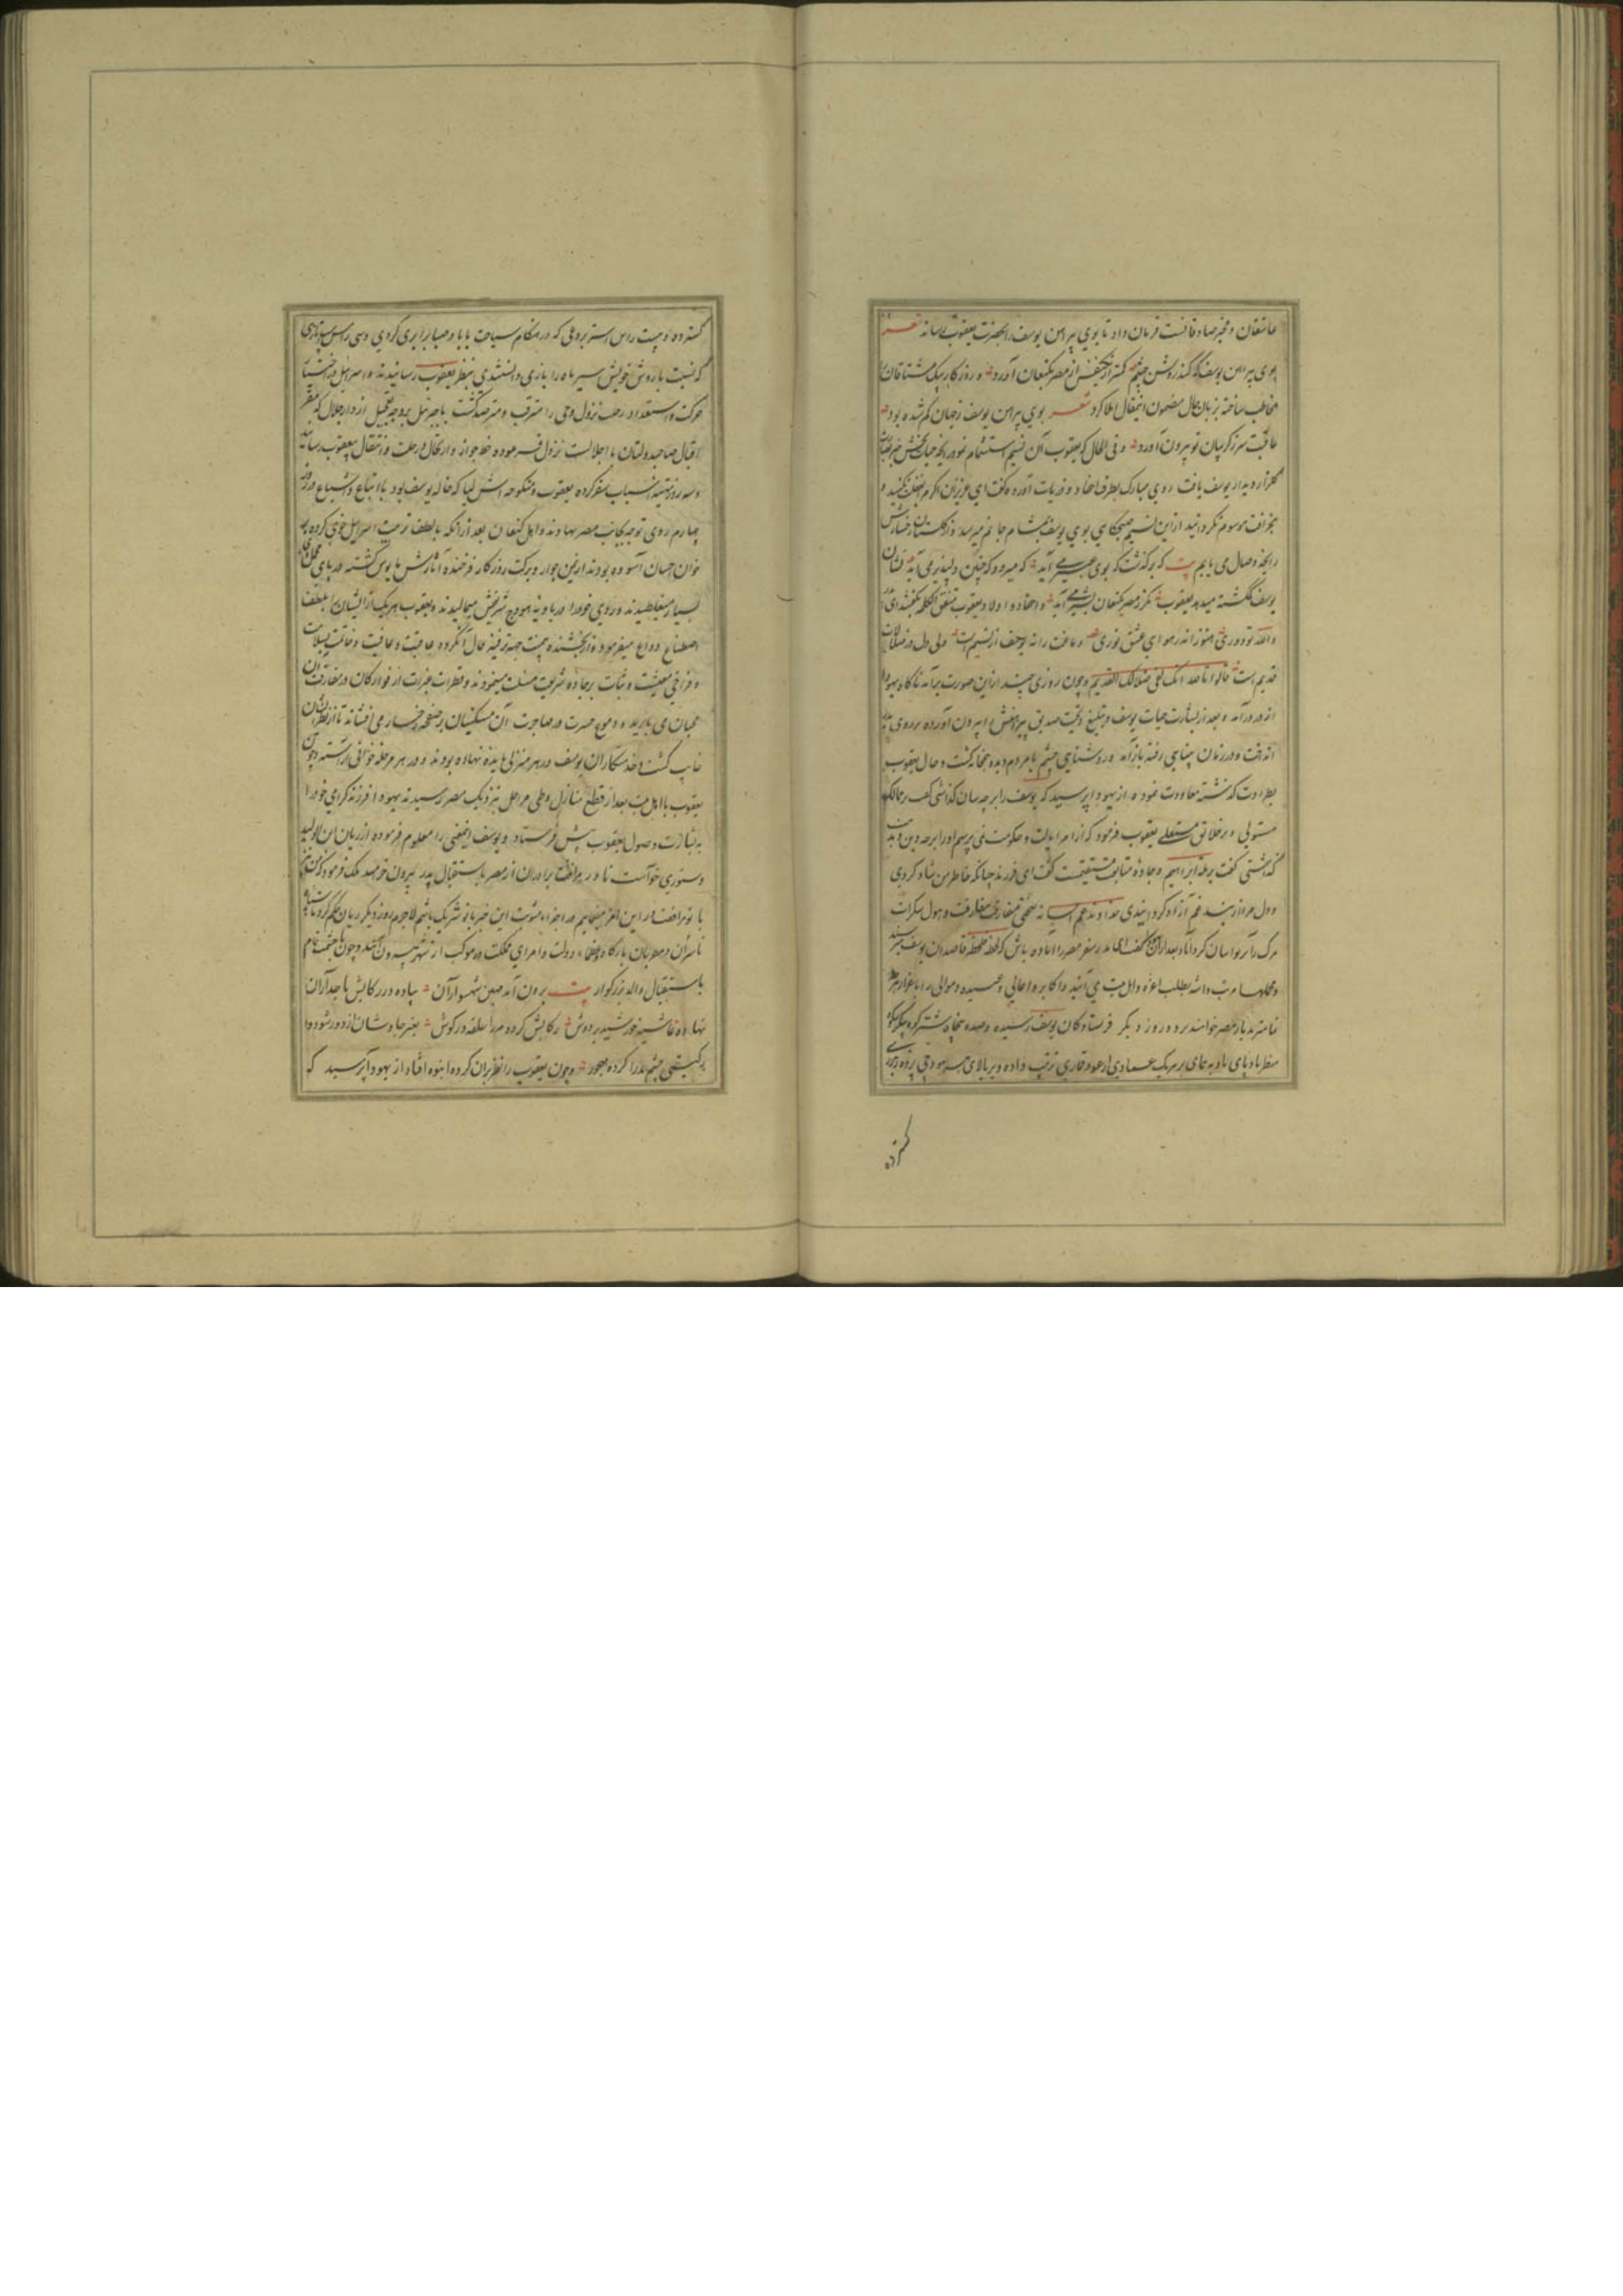 عاشقان و مخبر صادقانست فرمان داد تا بوی پیراهن یوسف را بحضرت یعقوب رساند شعر
بوی پیراهن یوسف که کند روشن چشم کمتر از یکنفس از مصر بکنعان آورد و روزگار پیک مشتاقان را
مخاطب ساخته بزبان حال مضمون این مقال املا کرد شعر بوی پیراهن یوسف ز جهان گم شده بود
عاقبت سر ز گریبان تو بیرون آورد و فی الحال که یعقوب آن نسیم استشمام نمود رایحه حیات بخش
گلزار دیدار یوسف یافت روی مبارک بطرف احفاد و ذریات آورده گفت ای عزیزان اگر مرا
بخرافت موسوم نگردانید از این نسیم صبحگاهی بوی یوسف بمشام جانم میرسد و از گلستان رخسارش
رایحه وصال می یابم بیت که برگذشت که بوی عبیر می آید که میرود که چنین دلپذیر می آید نشان
یوسف گمگشته میدهد یعقوب مگر ز مصر بکنعان بشیر می آید و احفاد و اولاد یعقوب متفق الکلمه گفتند ای
والله تو دوری هنوز اندر هوای عشق نوری دماغت را نه بوحف از نسیم است ولی دل در ضلالات
قدیم است قالوا تالله انک لفی ضلالک القدیم و چون روزی چند ازین صورت برآمد ناگاه یهودا
از در درآمد و بعد از بشارت حیات یوسف و تبلیغ تحیت صدیق پیراهنش را بیرون آورده بر روی
انداخت و در زمان بینایی رفته باز آمد و روشنایی چشم با مردم دیده همخانه گشت و حال یعقوب
بطراوت گذشته معاودت نموده از یهودا پرسید که یوسف را بر چه سان گذاشتی گفت بر ممالک
مستولی و بر خلایق مستعلی یعقوب فرمود که از امر ایالت و حکومت نمی پرسم او را بر چه دین و
گذاشتی گفت بر ملة ابراهیم و جاده متابعت گفت ای فرزند چنانکه خاطر من شاد کردی
و دل مرا از بند غم آزاد گردانیدی خداوند عم احسانه سختی مفارقت و هول سکرات
مرگ را بر تو آسان گرداناد بعد از آن گفت ای سفر مصر را آماده باش که لحظه فلحظه قاصدان یوسف
و محملها مرتب داشته بطلب اعزه و اهل بیت می آیند و اکابر و اعالی و عبید و موالی را
تا مترا بدیار مصر خوانند و روز دیگر فرستادگان یوسف رسیده و صد و پنجاه شتر کوه پیکر
منظر باد پای بادیه پیمای بر هر یک عماری از عود قماری ترتیب داده و بر بالای هر هودجی پرده
گسترده
گسترده و بیست راس استر بردعی که در هنگام سیاحت با باد صبا برابری کردی و سی راس اسب تازی
که نسبت با روش خویش سیر ماه را بازی دانستندی بنظر یعقوب رسانیدند و اسرائیل
حرکت و استعداد رحلت نزول وحی را مترقب و مترصد گشت تا جبرئیل بر وجه تعجیل از دار جلال که مقر
اقبال صاحبدولتان با اجلالست نزول فرموده خط جواز و ارتحال و رحلت و انتقال بیعقوب رسانید
و سه روز تهیه اسباب سفر کرده یعقوب و منکوحه اش لیا که خاله یوسف بود با اتباع و اشیاع در روز
چهارم روی توجه بجانب مصر نهادند و اهل کنعان بعد از آنکه با لطف تربیت اسرائیل خوی کرده بر
خوان احسان آسوده بودند از یمن جوار و برکت روزگار فرخنده آثارش مایوس گشته در پای محمل
بسیار میغلطیدند و روی خود را در پایه هودج شریفش میمالیدند و یعقوب هر یک از ایشان را بلطف
اصطناع وداع میفرمود و از بخشنده بیمنت جهة ترفیه حال آنگروه عاقبت و عافیت و خاتمت بسلامت
و فراخی معیشت و ثبات بر جاده شریعت مسئلت مینمودند و قطرات عبرات از فوارگان در مفارقت آن
محبان می باریدند و دموع حسرت در مهاجرت آن مسکینان بر صفحه رخسار می افشاند تا از نظر ایشان
غایب گشت و خدمتکاران یوسف در هر منزلی مایده نهاده بودند و در هر مرحله خوانی آراسته و چون
یعقوب با اهل بیت بعد از قطع منازل و طی مراحل بنزدیک مصر رسیدند یهودا فرزند گرامی خود را
به بشارت وصول یعقوب پیش فرستاد و یوسف اینمعنی را معلوم فرموده از ریان ابن الولید
دستوری خواست تا در مرافقت برادران از مصر باستقبال پدر بیرون خرامد ملک فرمود که من نیز
با تو مرافقت در این امر مینمایم و در اجزاء مثوبت این خیر با تو شریک باشم لاجرم روز دیگر ریان حکم کرد تا
تا سران و مقربان بارگاه و عظماء دولت و امرای مملکت در موکب از شهر بیرون آمدند و چون با حشمت تمام
باستقبال والد بزرگوار بیت برون آمد مهین شهسواران پیاده در رکابش تاجداران
نهاده غاشیه خورشید بر دوش رکابش کرده مه را حلقه در گوش بغیر جاوشان از دور شو دوا
ز گیتی چشم بد را کرده مهجور و چون یعقوب را نظر بر آن گروه انبوه افتاد از یهودا پرسید که